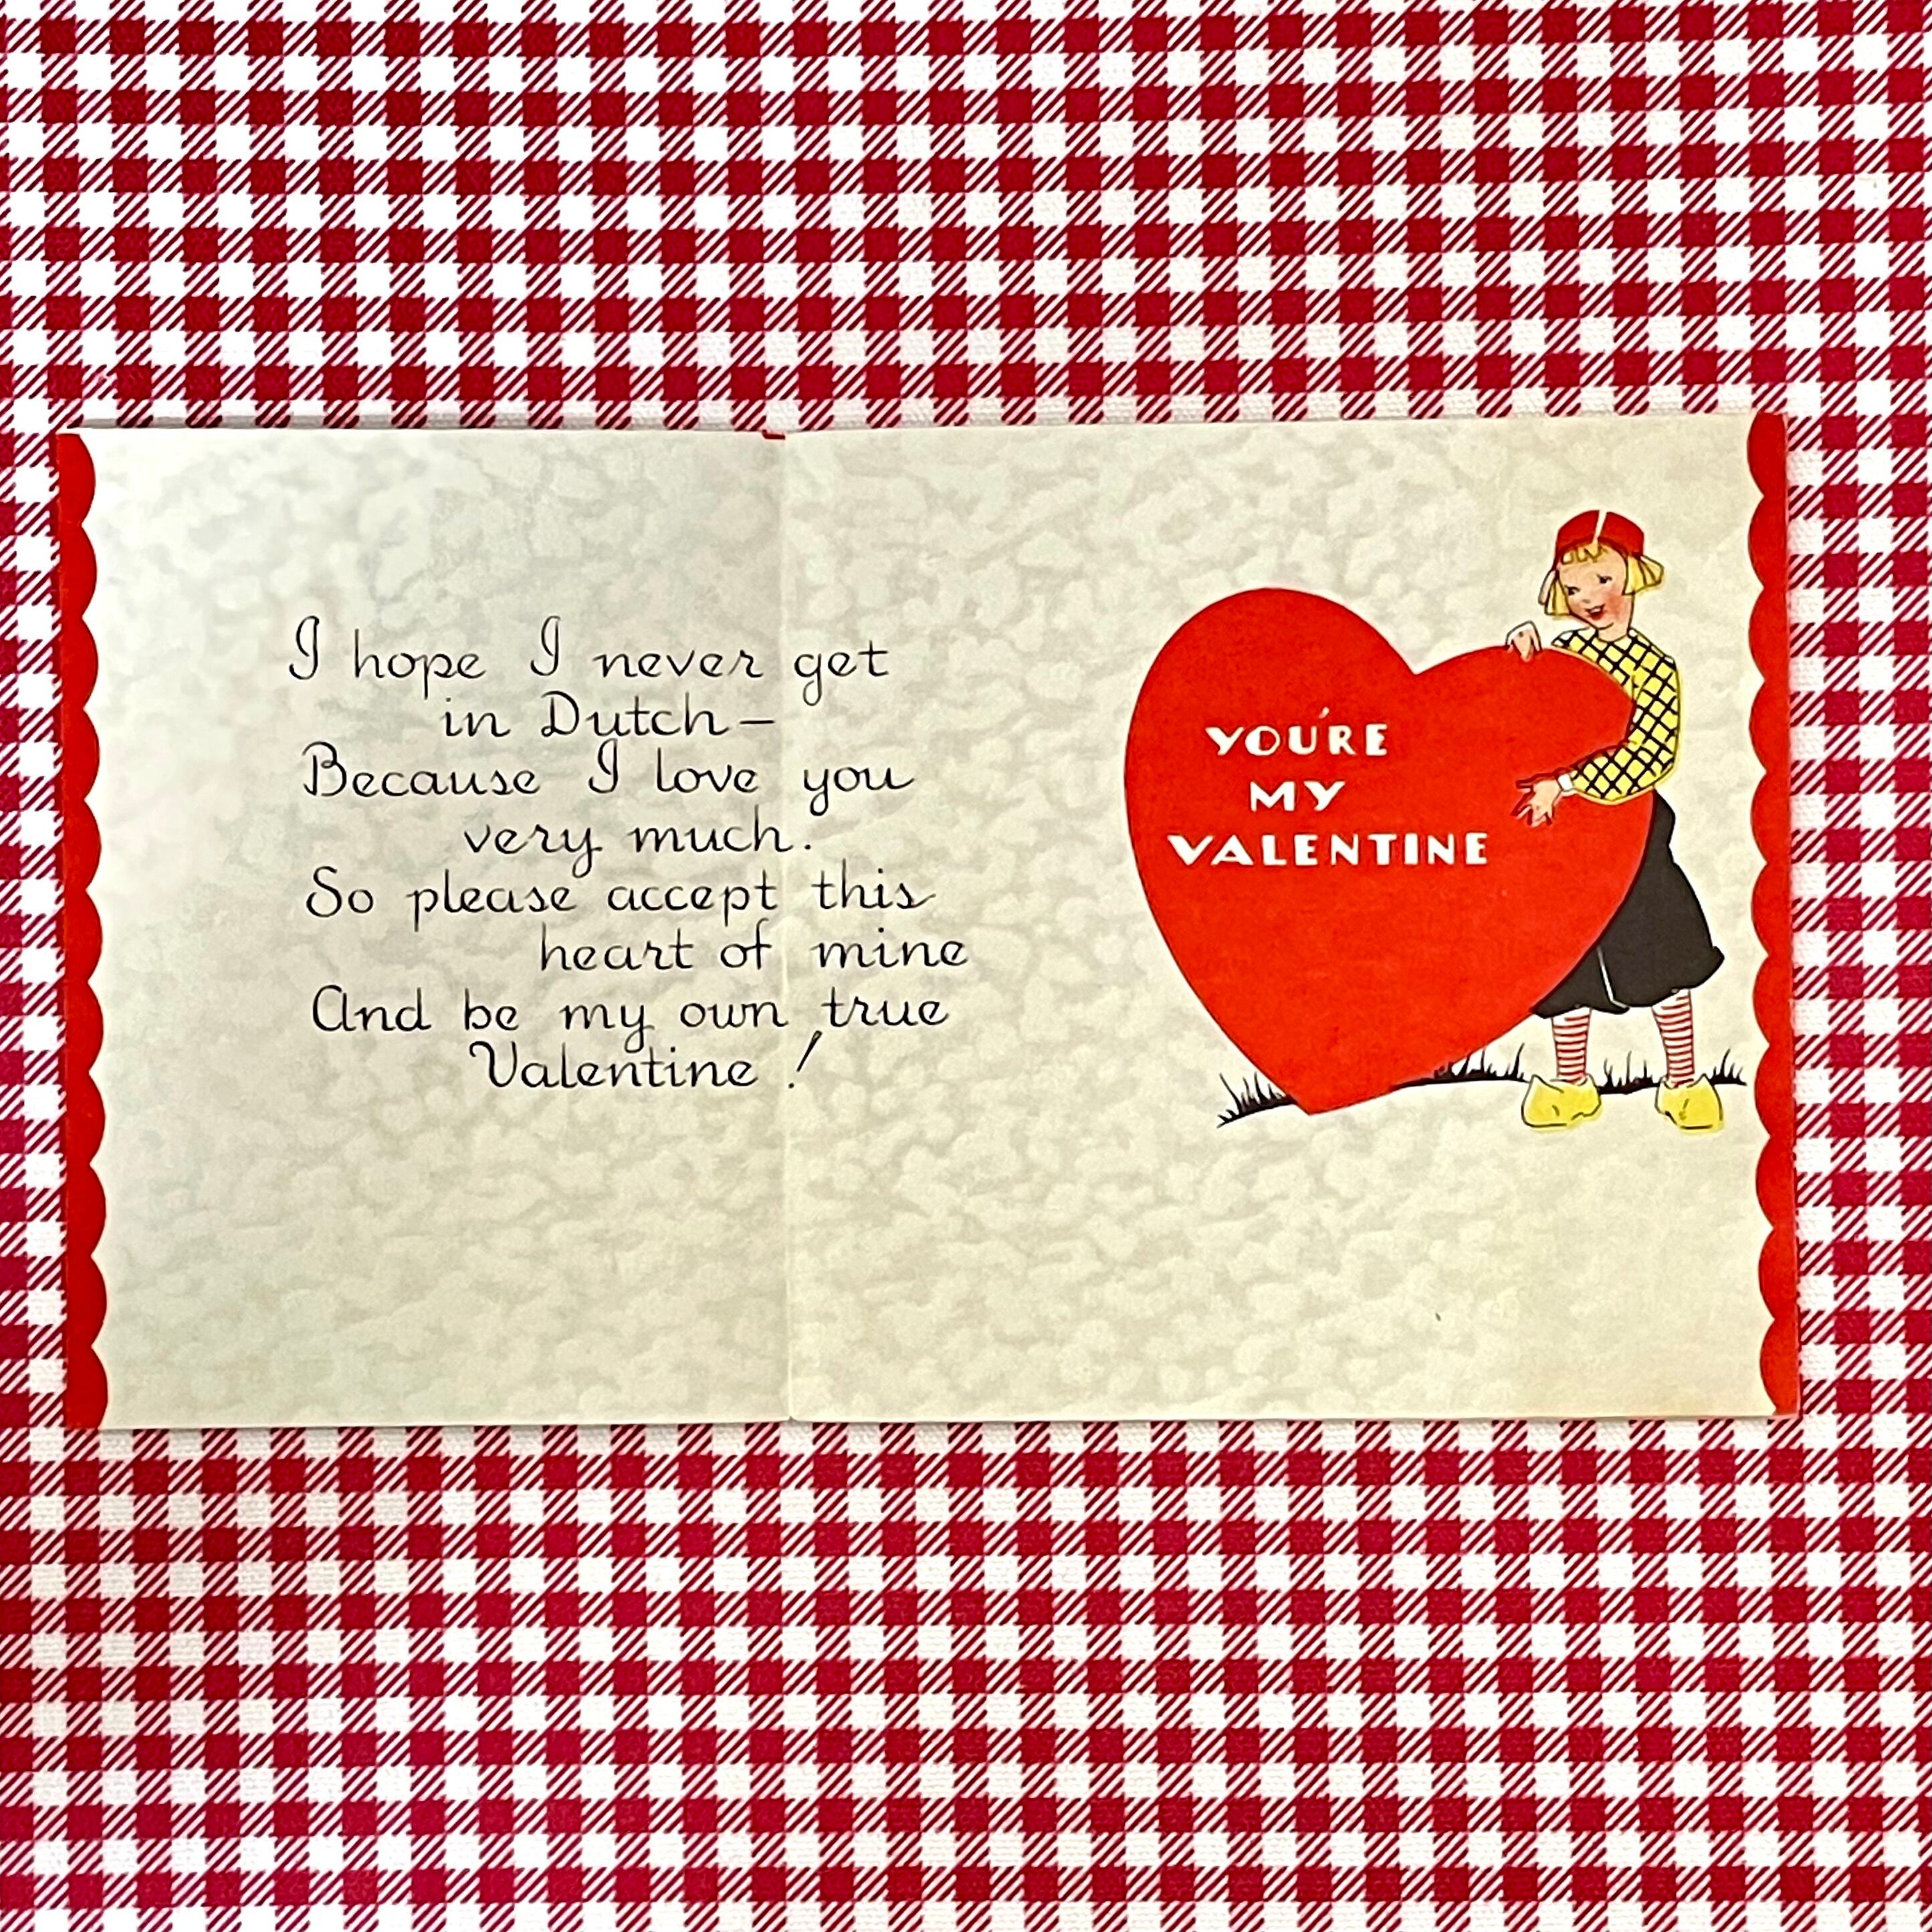 I hope I never get
in Dutch—
Because I love you
very much.
So please accept this
heart of mine
And be my own true
Valentine!
YOU'RE
MY
VALENTINE